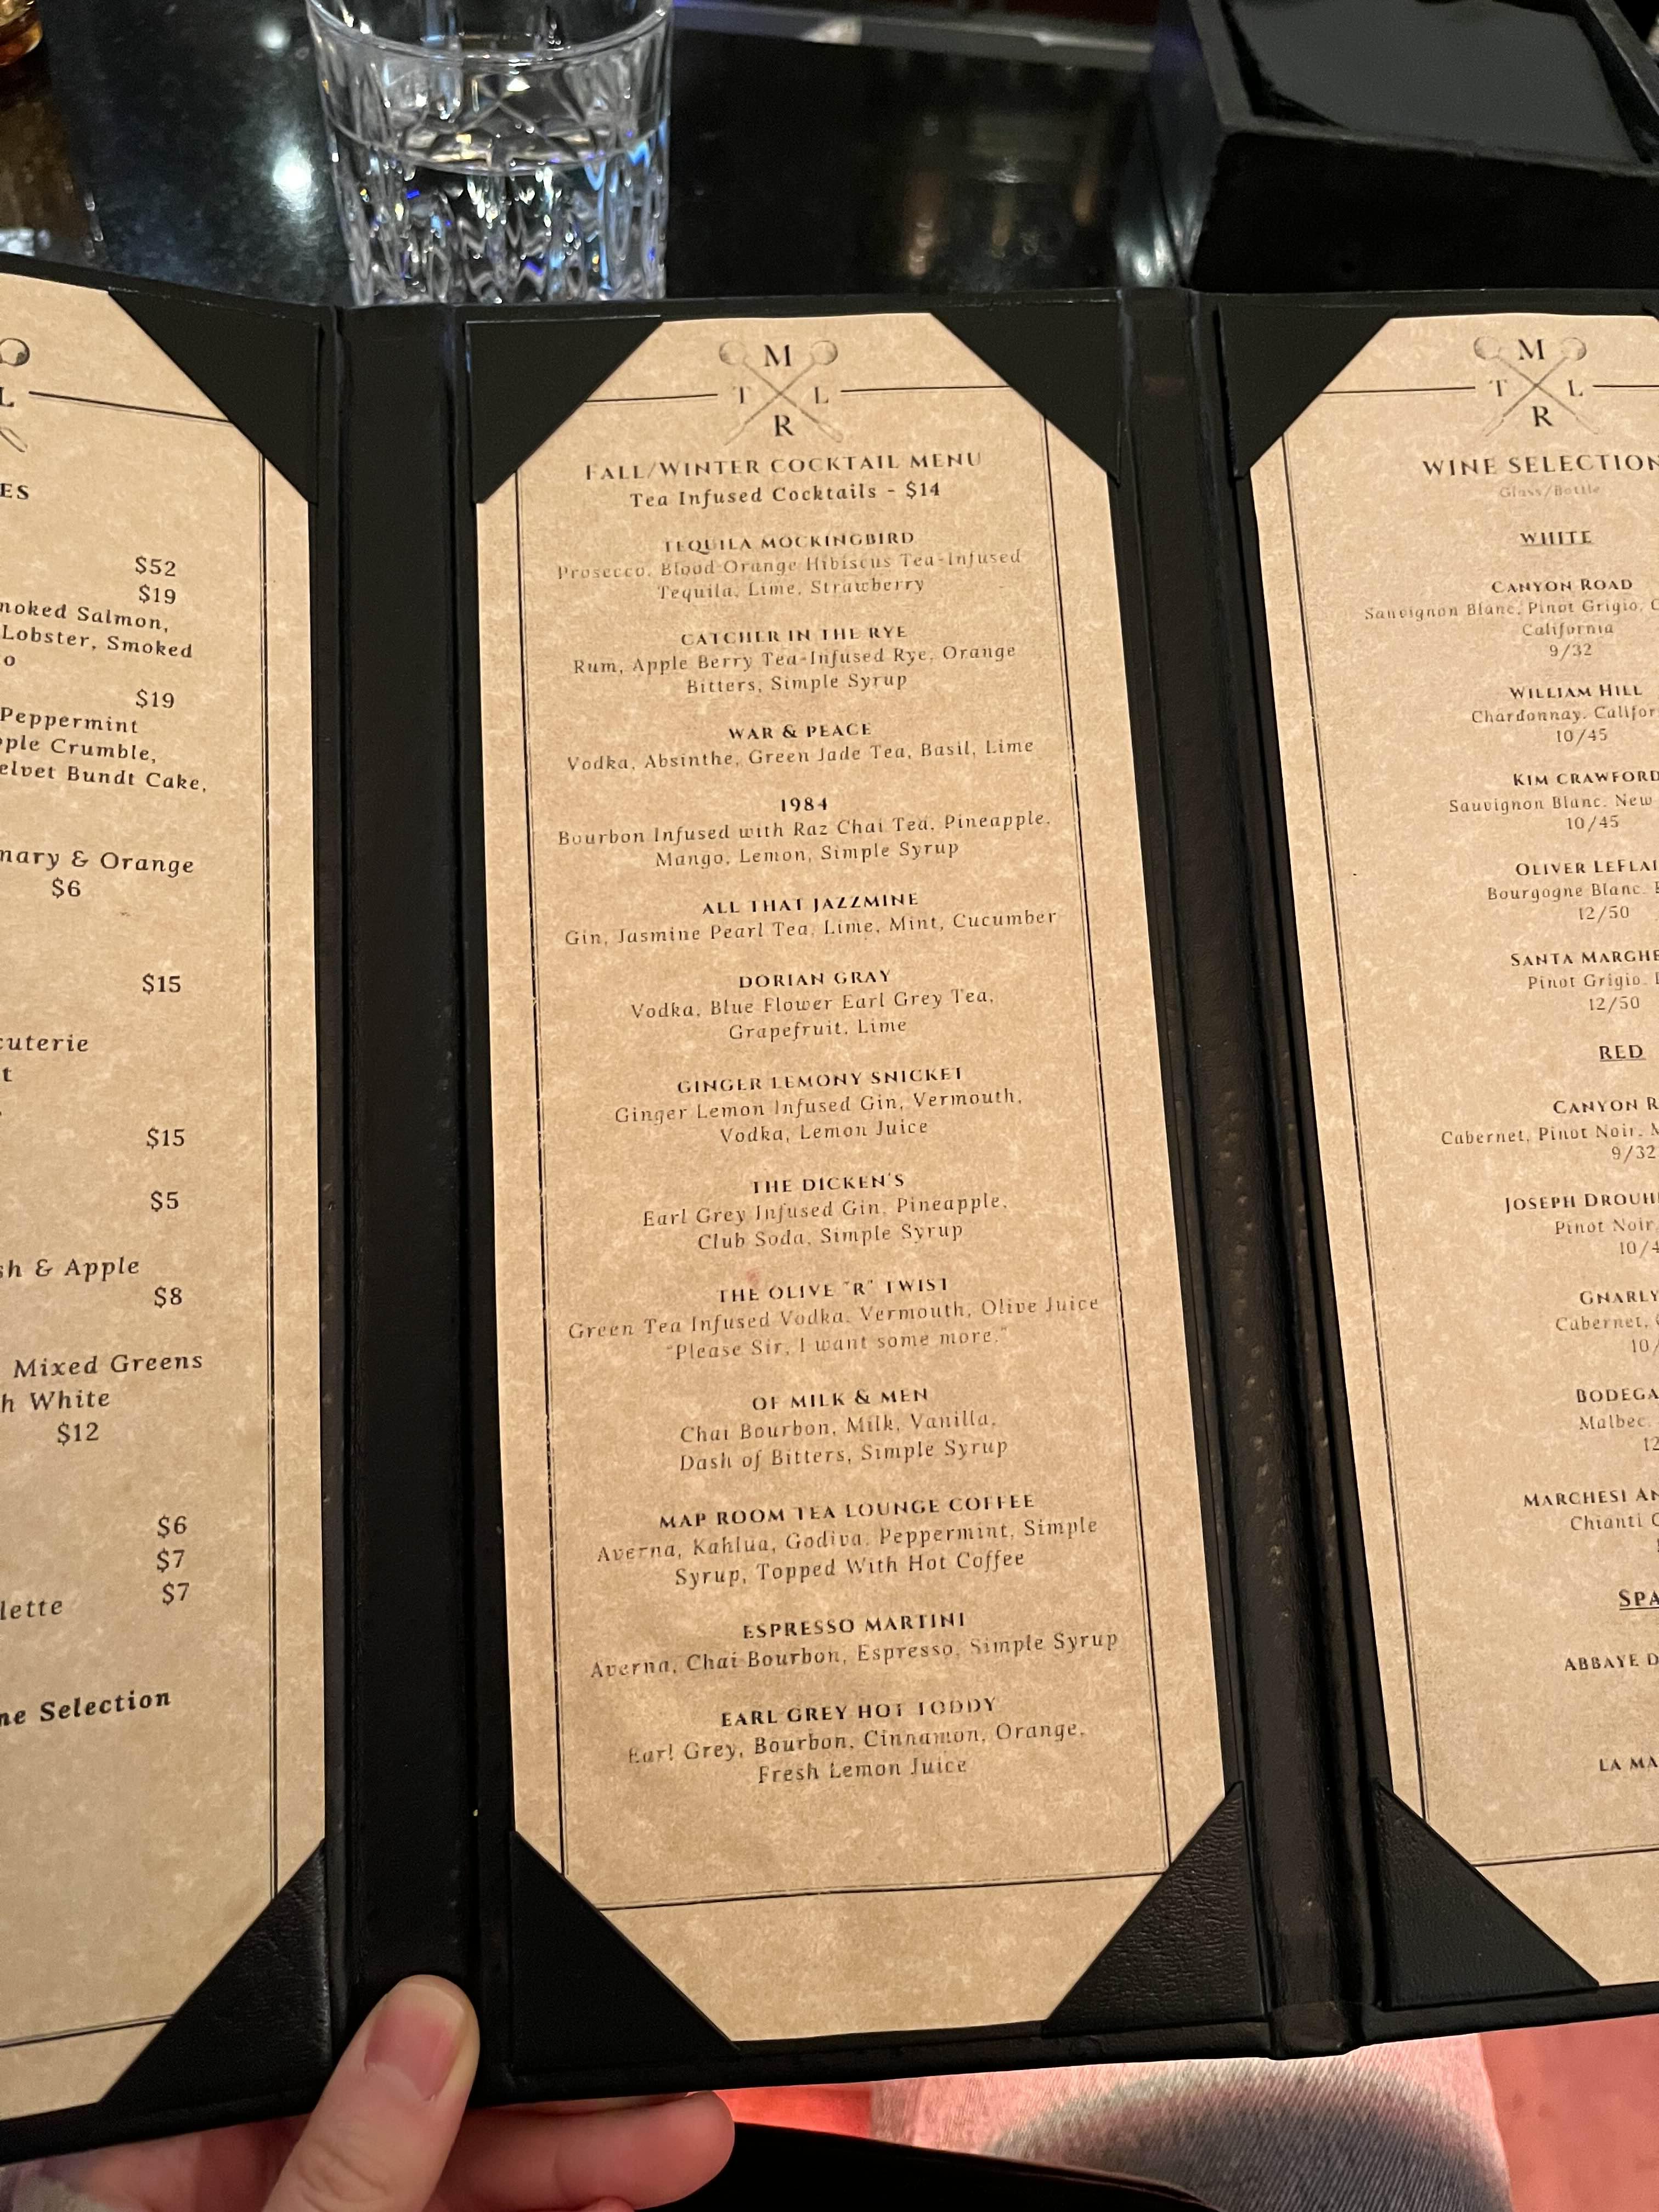 L
ES
$52
$19
moked Salmon,
Lobster, Smoked
o
$19
Peppermint
pple Crumble,
elvet Bundt Cake,
mary & Orange
$6
$15
cuterie
t
$15
$5
sh & Apple
$8
Mixed Greens
h White
$12
$6
$7
lette $7
ne Selection
M
T L
R
FALL/WINTER COCKTAIL MENU
Tea Infused Cocktails - $14
TEQUILA MOCKINGBIRD
Prosecco, Blood Orange Hibiscus Tea-Infused
Tequila, Lime, Strawberry
CATCHER IN THE RYE
Rum, Apple Berry Tea-Infused Rye, Orange
Bitters, Simple Syrup
WAR & PEACE
Vodka, Absinthe, Green Jade Tea, Basil, Lime
1984
Bourbon Infused with Raz Chai Tea, Pineapple,
Mango, Lemon, Simple Syrup
ALL THAT JAZZMINE
Gin, Jasmine Pearl Tea, Lime, Mint, Cucumber
DORIAN GRAY
Vodka, Blue Flower Earl Grey Tea,
Grapefruit, Lime
GINGER LEMONY SNICKET
Ginger Lemon Infused Gin, Vermouth,
Vodka, Lemon Juice
THE DICKEN'S
Earl Grey Infused Gin, Pineapple,
Club Soda, Simple Syrup
THE OLIVE "R" TWIST
Green Tea Infused Vodka, Vermouth, Olive Juice
"Please Sir, I want some more."
OF MILK & MEN
Chai Bourbon, Milk, Vanilla,
Dash of Bitters, Simple Syrup
MAP ROOM TEA LOUNGE COFFEE
Averna, Kahlua, Godiva, Peppermint, Simple
Syrup, Topped With Hot Coffee
ESPRESSO MARTINI
Averna, Chai Bourbon, Espresso, Simple Syrup
EARL GREY HOT TODDY
Earl Grey, Bourbon, Cinnamon, Orange,
Fresh Lemon Juice
M
T L
R
WINE SELECTION
Glass/Bottle
WHITE
CANYON ROAD
Sauvignon Blanc, Pinot Grigio, C
California
9/32
WILLIAM HILL
Chardonnay, Califor
10/45
KIM CRAWFORD
Sauvignon Blanc, New
10/45
OLIVER LEFLAI
Bourgogne Blanc,
12/50
SANTA MARGHE
Pinot Grigio,
12/50
RED
CANYON R
Cabernet, Pinot Noir, M
9/32
JOSEPH DROUH
Pinot Noir,
10/4
GNARLY
Cabernet,
10/
BODEGA
Malbec,
12
MARCHESI AN
Chianti C
SPA
ABBAYE D
LA MA